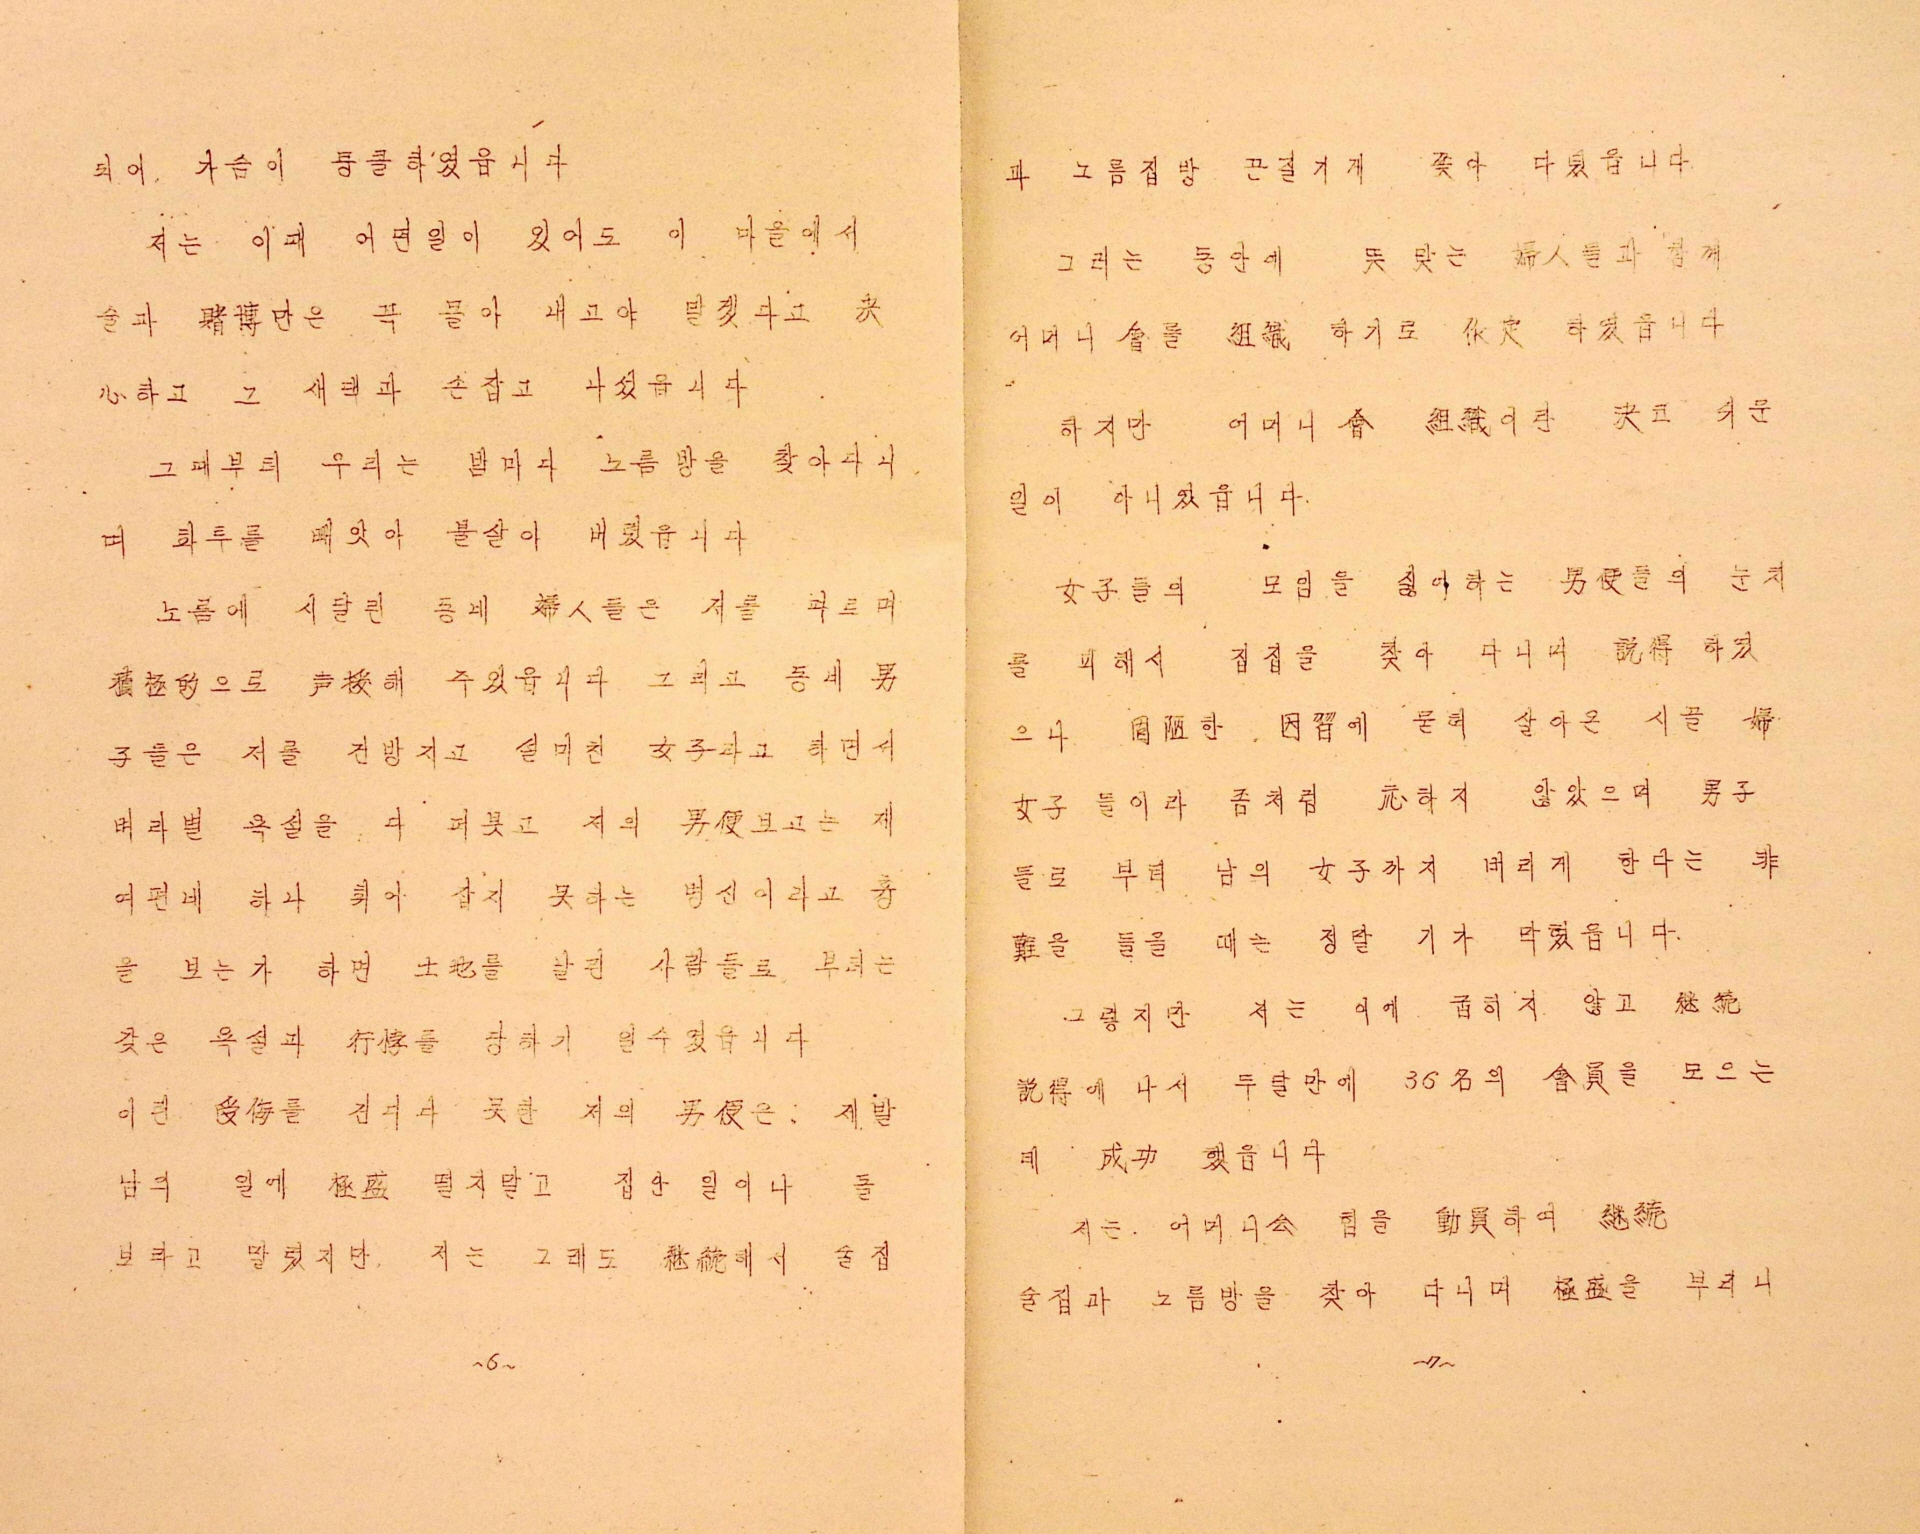 되어, 가슴이 뭉클하였읍니다
저는 이때 어떤일이 있어도 이 마을에서
술과 賭博만은 꼭 몰아 내고야 말겠다고 决
心하고 그 새댁과 손잡고 나섰읍니다
그때부터 우리는 밤마다 노름방을 찾아다니
며 화투를 빼앗아 불살아 버렸읍니다
노름에 시달린 동네 婦人들은 저를 따르며
積極的으로 声援해 주었읍니다 그리고 동네 男
子들은 저를 건방지고 설미친 女子라고 하면서
벼라별 욕설을 다 퍼붓고 저의 男便보고는 제
여편네 하나 휘어 잡지 못하는 병신이라고 흉
을 보는가 하면 土地를 날린 사람들로 부터는
갖은 욕설과 行悖를 당하기 일수였읍니다
이런 受侮를 견디다 못한 저의 男便은, 제발
남의 일에 極盛 떨지말고 집안 일이나 돌
보라고 말렸지만, 저는 그래도 継続해서 술집
~6~
과 노름집방 끈질기게 쫒아 다녔읍니다
그러는 동안에 뜻 맞는 婦人들과 함께
어머니 會를 組織 하기로 作定 하였읍니다
하지만 어머니會 組織이란 决코 쉬운
일이 아니었읍니다.
女子들의 모임을 싫어하는 男便들의 눈치
를 피해서 집집을 찾아 다니며 説得 하였
으나 固陋한 因習에 묻혀 살아온 시골 婦
女子 들이라 좀처럼 応하지 않았으며 男子
들로 부터 남의 女子까지 버리게 한다는 非
難을 들을 때는 정말 기가 막혔읍니다.
그렇지만 저는 이에 굽히지 않고 継続
説得에 나서 두달만에 36名의 會員을 모으는
데 成功 했읍니다
저는. 어머니会 힘을 動員하여 継続
술집과 노름방을 찾아 다니며 極盛을 부리니
~7~